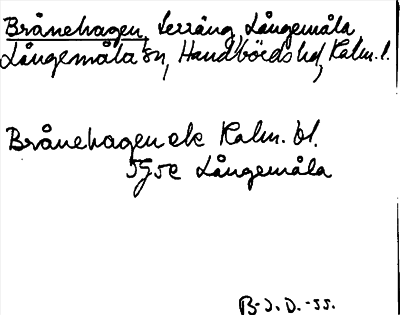 Brånehagen, terräng, Långemåla,
Långemåla sn, Handbörds hd, Kalm. l.
Brånehagen ek Kalm. bl.
5G5e Långemåla
B-J. D. -55.